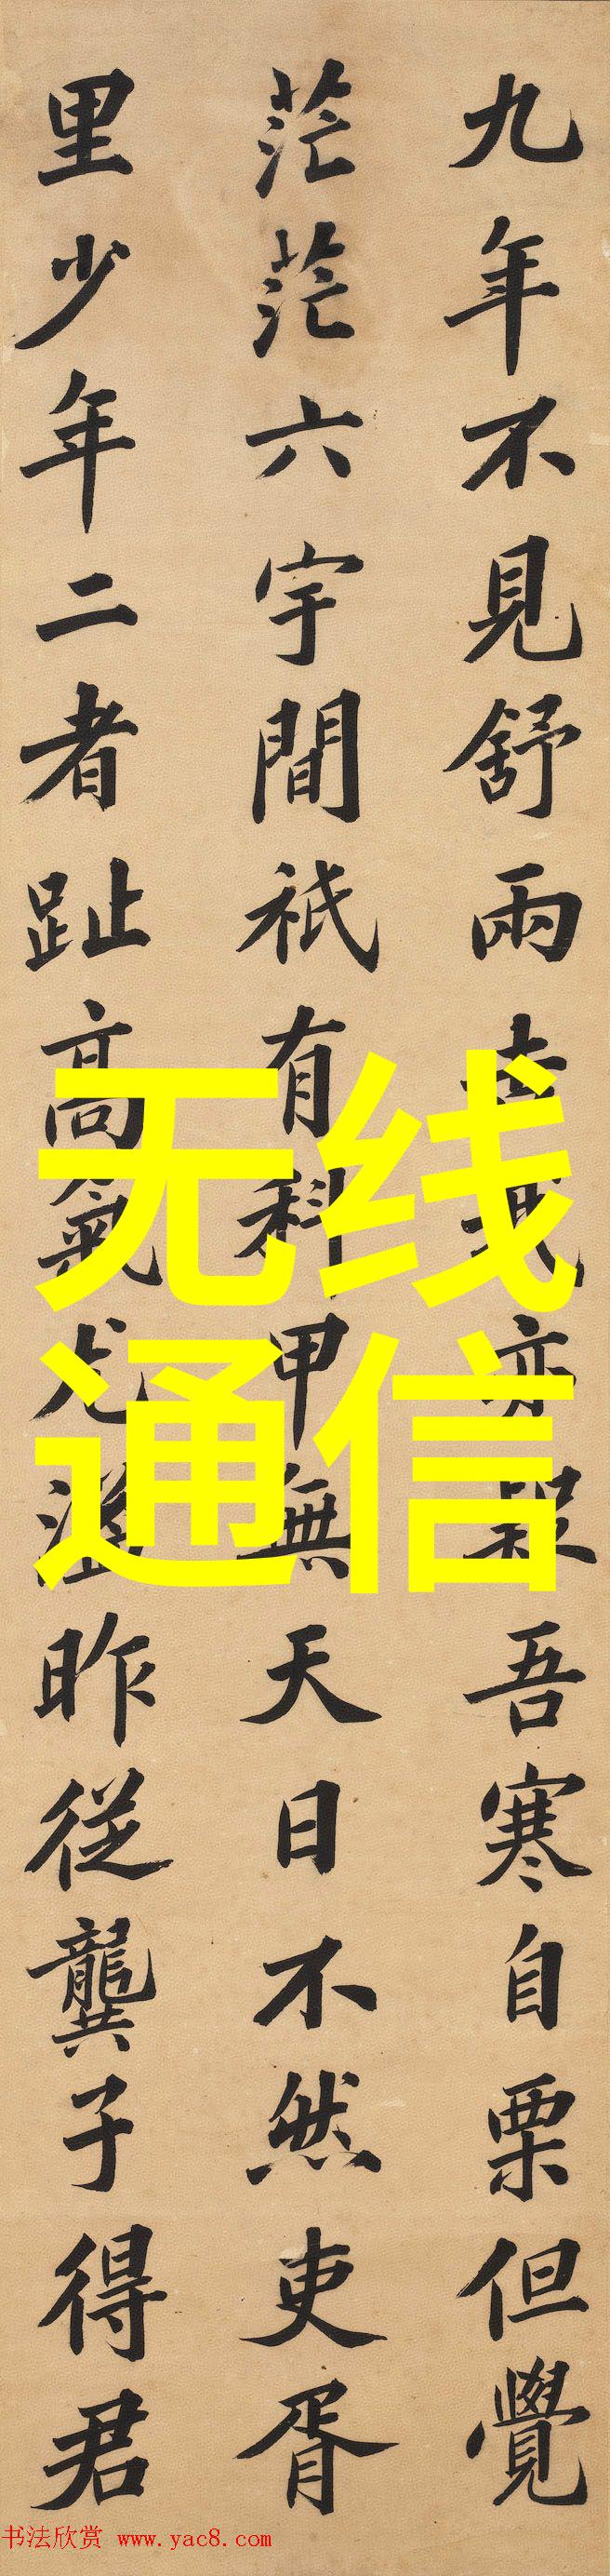 九年不見舒雨吉我亦提吾寒自栗但覺
茫茫六宇間祇有科甲無天日不然吏胥
里少年二者趾高氣尤溢昨從龔子得君
无线
通信
书法欣赏 www.yac8.com